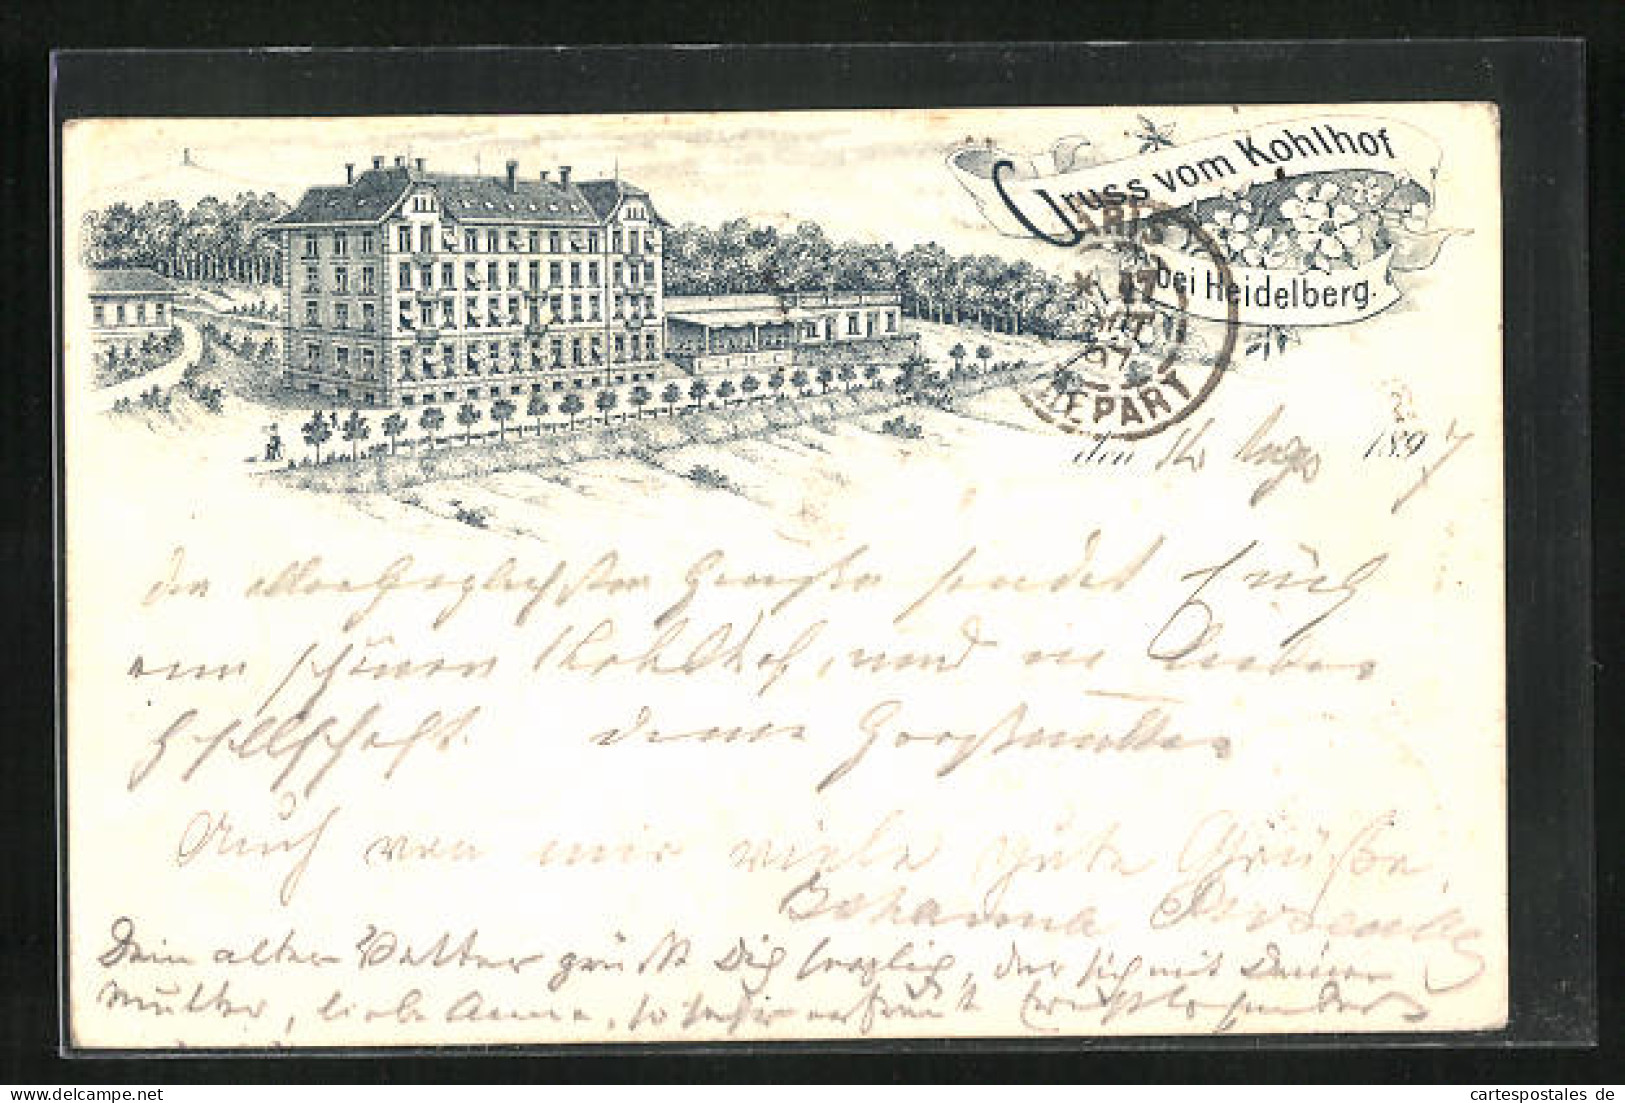 Gruss vom Kohlhof
bei Heidelberg.
PARIS
17
97
DEPART
den 16 Aug 1897
Die allerherzlichsten Grüße sendet Dich
vom schönen Kohlhof, und in lieber
Gesellschaft deine Großmutter
Auch von mir viele gute Grüße,
Johanna
Dein alter Vetter grüßt Dich herzlich, der sich mit Deiner
Mutter, liebe Anna, so sehr erfreut
cartespostales de